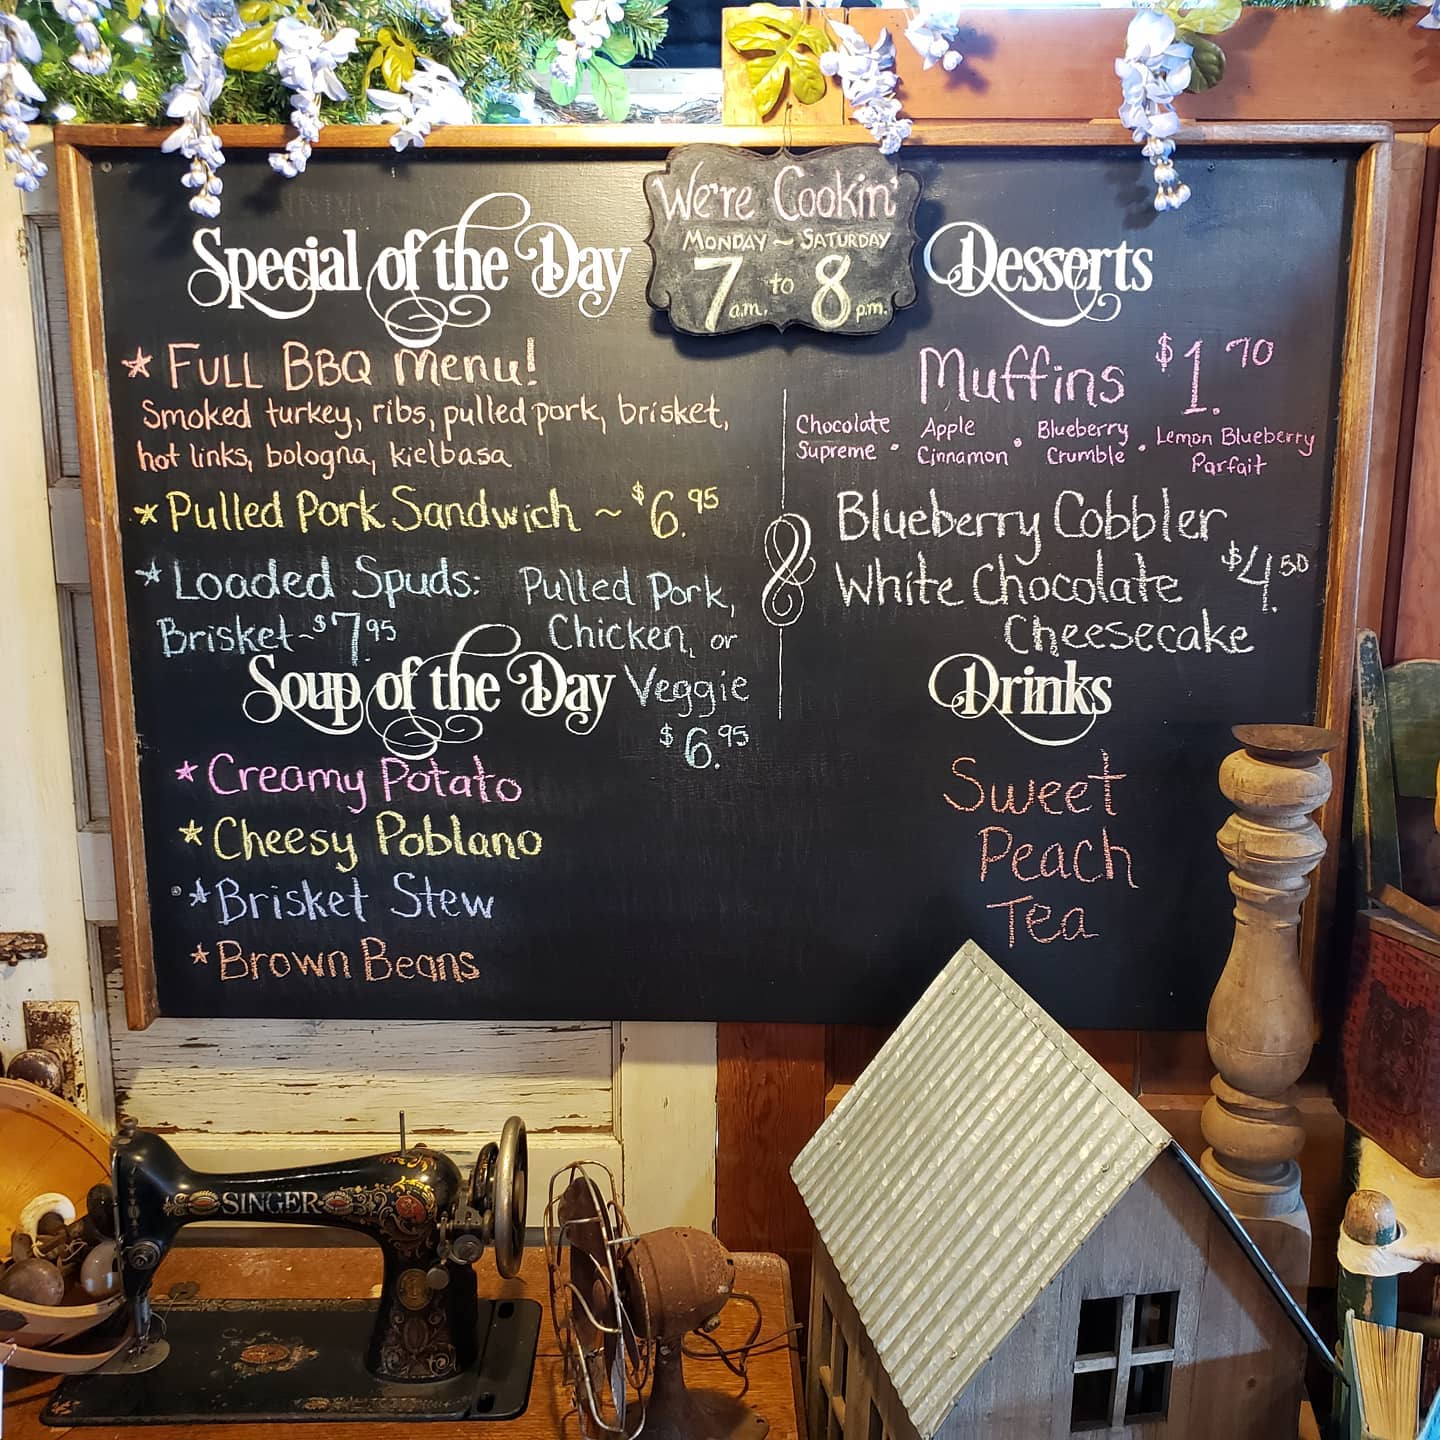 We're Cookin'
Monday ~ Saturday
7 a.m. to 8 p.m.
Special of the Day
* Full BBQ Menu!
Smoked turkey, ribs, pulled pork, brisket,
hot links, bologna, kielbasa
* Pulled Pork Sandwich ~ $6.95
* Loaded Spuds: Pulled Pork,
Brisket ~ $7.95 Chicken, or
Veggie
$6.95
Soup of the Day
* Creamy Potato
* Cheesy Poblano
* Brisket Stew
* Brown Beans
&
Desserts
Muffins $1.70
Chocolate Supreme • Apple Cinnamon • Blueberry Crumble • Lemon Blueberry Parfait
Blueberry Cobbler
White Chocolate $4.50
Cheesecake
Drinks
Sweet
Peach
Tea
SINGER